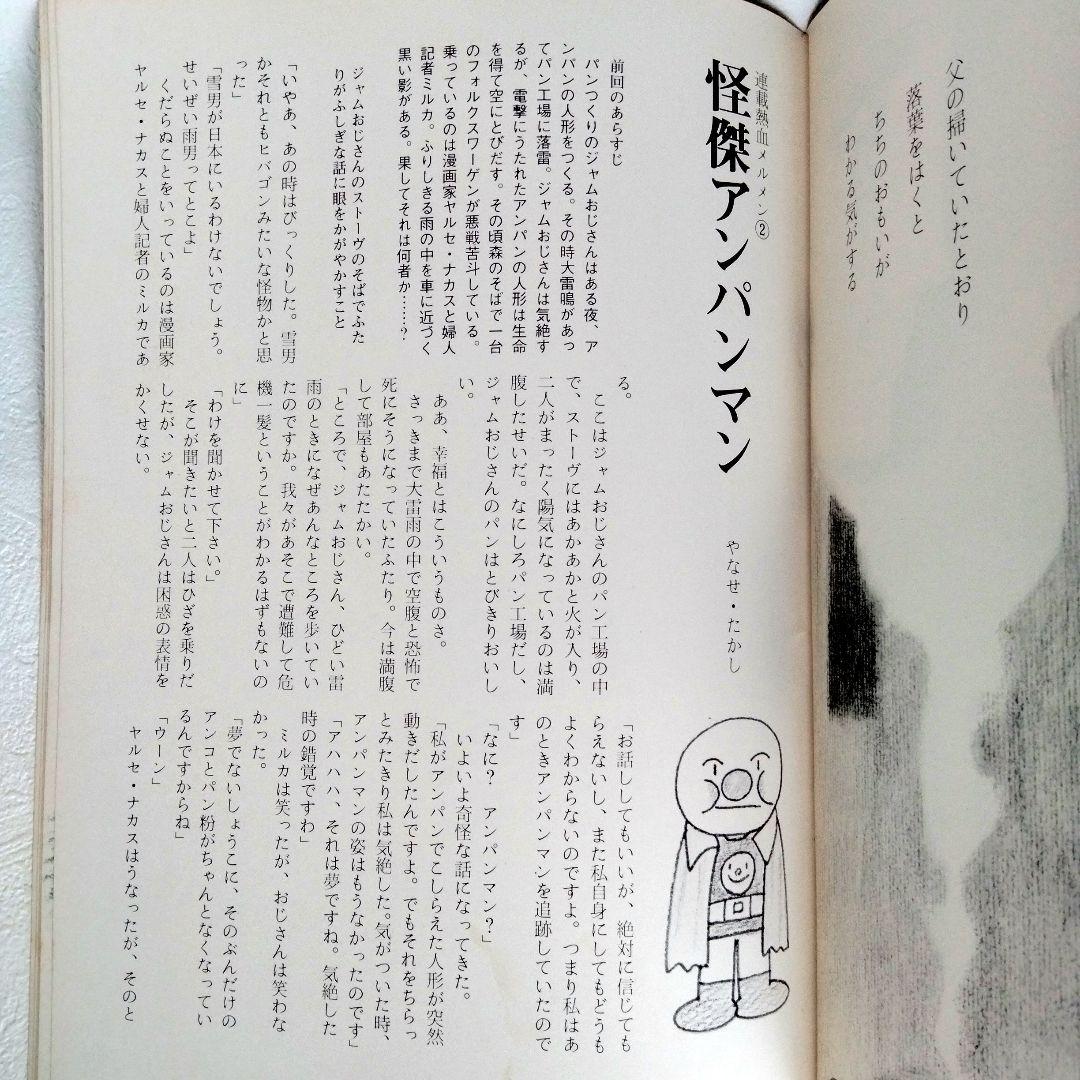 父の掃いていたとおり
落葉をはくと
ちちのおもいが
わかる気がする
連載熱血メルメン②
怪傑アンパンマン
やなせ・たかし
前回のあらすじ
パンつくりのジャムおじさんはある夜、ア
ンパンの人形をつくる。その時大雷鳴があっ
てパン工場に落雷。ジャムおじさんは気絶す
るが、電撃にうたれたアンパンの人形は生命
を得て空にとびだす。その頃森のそばで一台
のフォルクスワーゲンが悪戦苦斗している。
乗っているのは漫画家ヤルセ・ナカスと婦人
記者ミルカ。ふりしきる雨の中を車に近づく
黒い影がある。果してそれは何者か……?
ジャムおじさんのストーヴのそばでふた
りがふしぎな話に眼をかがやかすこと
「いやあ、あの時はびっくりした。雪男
かそれともヒバゴンみたいな怪物かと思
った」
「雪男が日本にいるわけないでしょう。
せいぜい雨男ってとこよ」
くだらぬことをいっているのは漫画家
ヤルセ・ナカスと婦人記者のミルカであ
る。
ここはジャムおじさんのパン工場の中
で、ストーヴにはあかあかと火が入り、
二人がまったく陽気になっているのは満
腹したせいだ。なにしろパン工場だし、
ジャムおじさんのパンはとびきりおいし
い。
ああ、幸福とはこういうものさ。
さっきまで大雷雨の中で空腹と恐怖で
死にそうになっていたふたり。今は満腹
して部屋もあたたかい。
「ところで、ジャムおじさん、ひどい雷
雨のときになぜあんなところを歩いてい
たのですか。我々があそこで遭難して危
機一髪ということがわかるはずもないの
に」
「わけを聞かせて下さい。」
そこが聞きたいと二人はひざを乗りだ
したが、ジャムおじさんは困惑の表情を
かくせない。
「お話ししてもいいが、絶対に信じても
らえないし、また私自身にしてもどうも
よくわからないのですよ。つまり私はあ
のときアンパンマンを追跡していたので
す」
「なに? アンパンマン?」
いよいよ奇怪な話になってきた。
「私がアンパンでこしらえた人形が突然
動きだしたんですよ。でもそれをちらっ
とみたきり私は気絶した。気がついた時、
アンパンマンの姿はもうなかったのです」
「アハハハ、それは夢ですね。気絶した
時の錯覚ですわ」
ミルカは笑ったが、おじさんは笑わな
かった。
「夢でないしょうこに、そのぶんだけの
アンコとパン粉がちゃんとなくなってい
るんですからね」
「ウーン」
ヤルセ・ナカスはうなったが、そのと